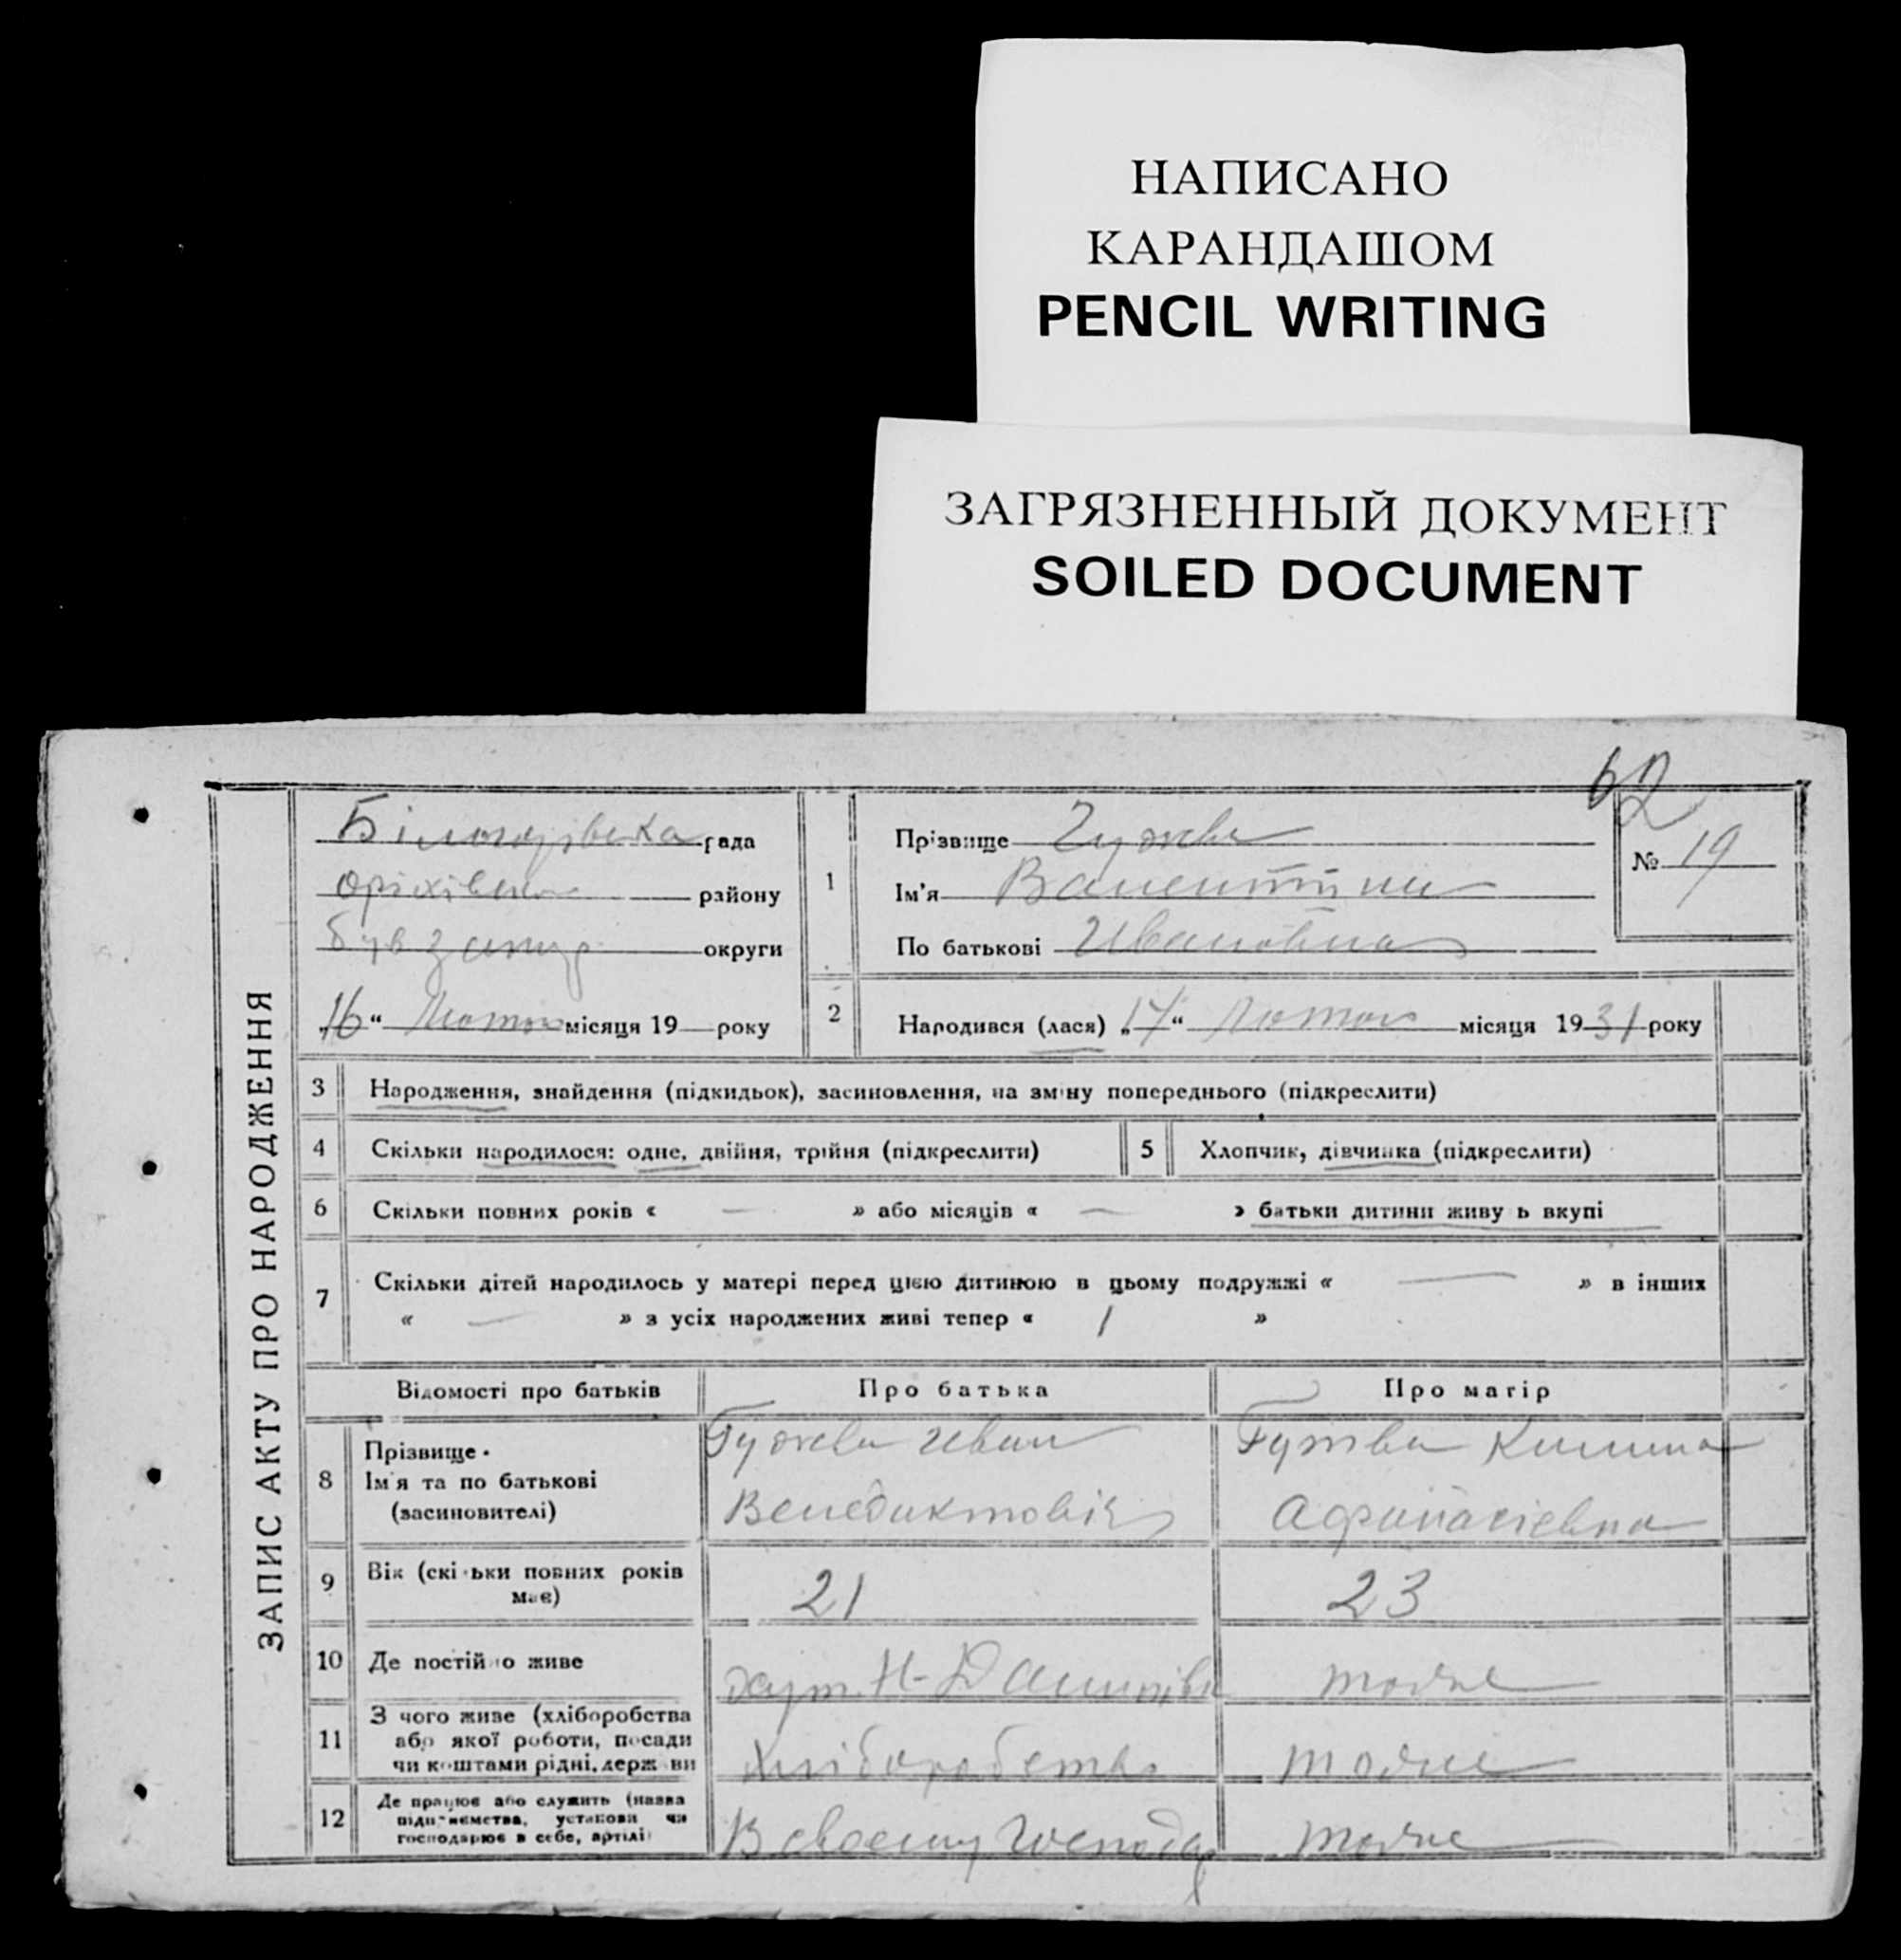 НАПИСАНО
КАРАНДАШОМ
PENCIL WRITING
ЗАГРЯЗНЕННЫЙ ДОКУМЕНТ
SOILED DOCUMENT
62
ЗАПИС АКТУ ПРО НАРОДЖЕННЯ
рада
району
округи
„16“ місяця 19 року
1
Прізвище Гужва
Ім'я
По батькові Ивановна
№ 19
2 Народився (лася) „17“ місяця 1931 року
3 Народження, знайдення (підкидьок), засиновлення, на зміну попереднього (підкреслити)
4 Скільки народилося: одне, двійня, трійня (підкреслити)
5 Хлопчик, дівчинка (підкреслити)
6 Скільки повних років « — » або місяців « — » батьки дитини живуть вкупі
7 Скільки дітей народилось у матері перед цією дитиною в цьому подружжі « — » в інших
« — » з усіх народжених живі тепер « 1 »
Відомості про батьків Про батька Про матір
8 Прізвище
Ім'я та по батькові
(засиновителі)
Гужва Иван
Венедиктовіч
Гужва
9 Вік (скільки повних років
має)
21 23
10 Де постійно живе
хут. тоже
11 З чого живе (хліборобства
або якої роботи, посади
чи коштами рідні, держави
Хліборобство тоже
12 Де працює або служить (назва
підприємства, установи чи
господарює в себе, артілі)
В своему господар тоже